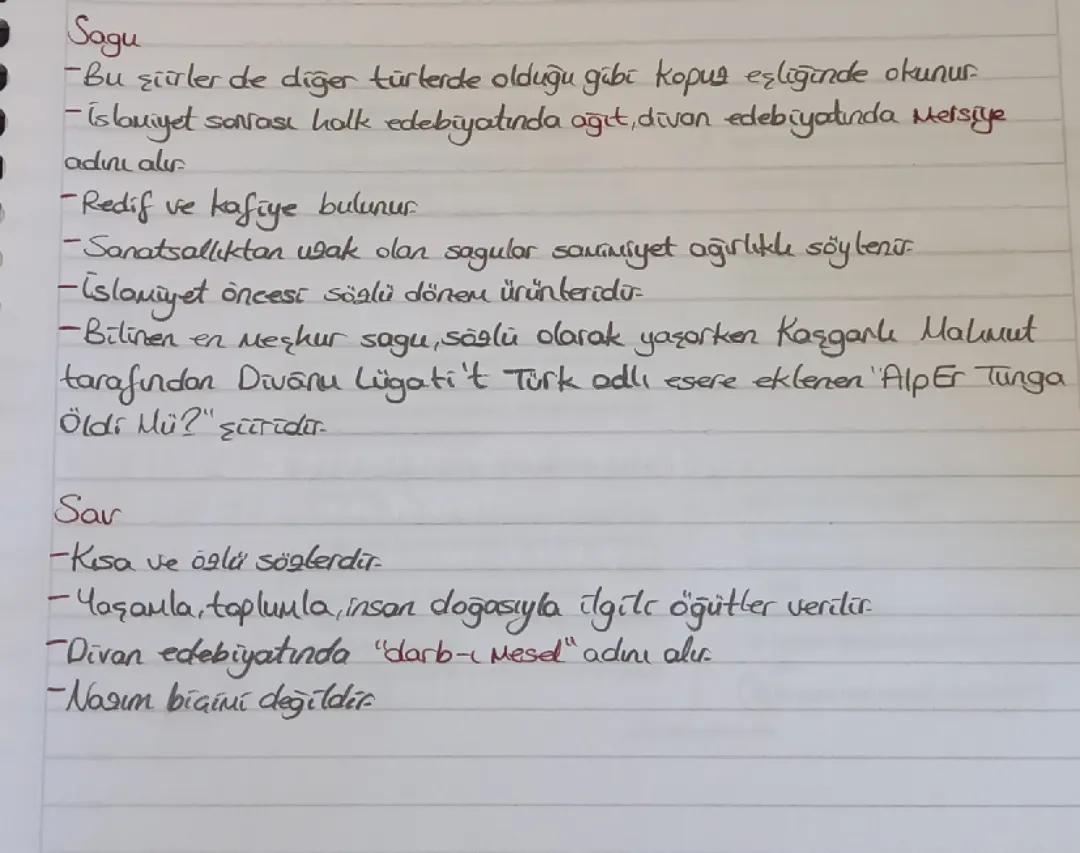 Sagu
-Bu şiirler de diğer türlerde olduğu gibi kopuz eşliğinde okunur.
-İslamiyet sonrası halk edebiyatında ağıt, divan edebiyatında Mersiye
adını alır.
-Redif ve kafiye bulunur.
-Sanatsallıktan uzak olan sagular samimiyet ağırlıklı söylenir.
-İslamiyet öncesi sözlü dönem ürünleridir.
-Bilinen en meşhur sagu, sözlü olarak yaşarken Kaşgarlı Mahmut
tarafından Divânu Lügati't Türk adlı esere eklenen "Alp Er Tunga
Öldi Mü?" şiiridir.
Sav
-Kısa ve özlü sözlerdir.
-Yaşamla, toplumla, insan doğasıyla ilgili öğütler verilir.
-Divan edebiyatında "darb-ı Mesel" adını alır.
-Nazım biçimi değildir.